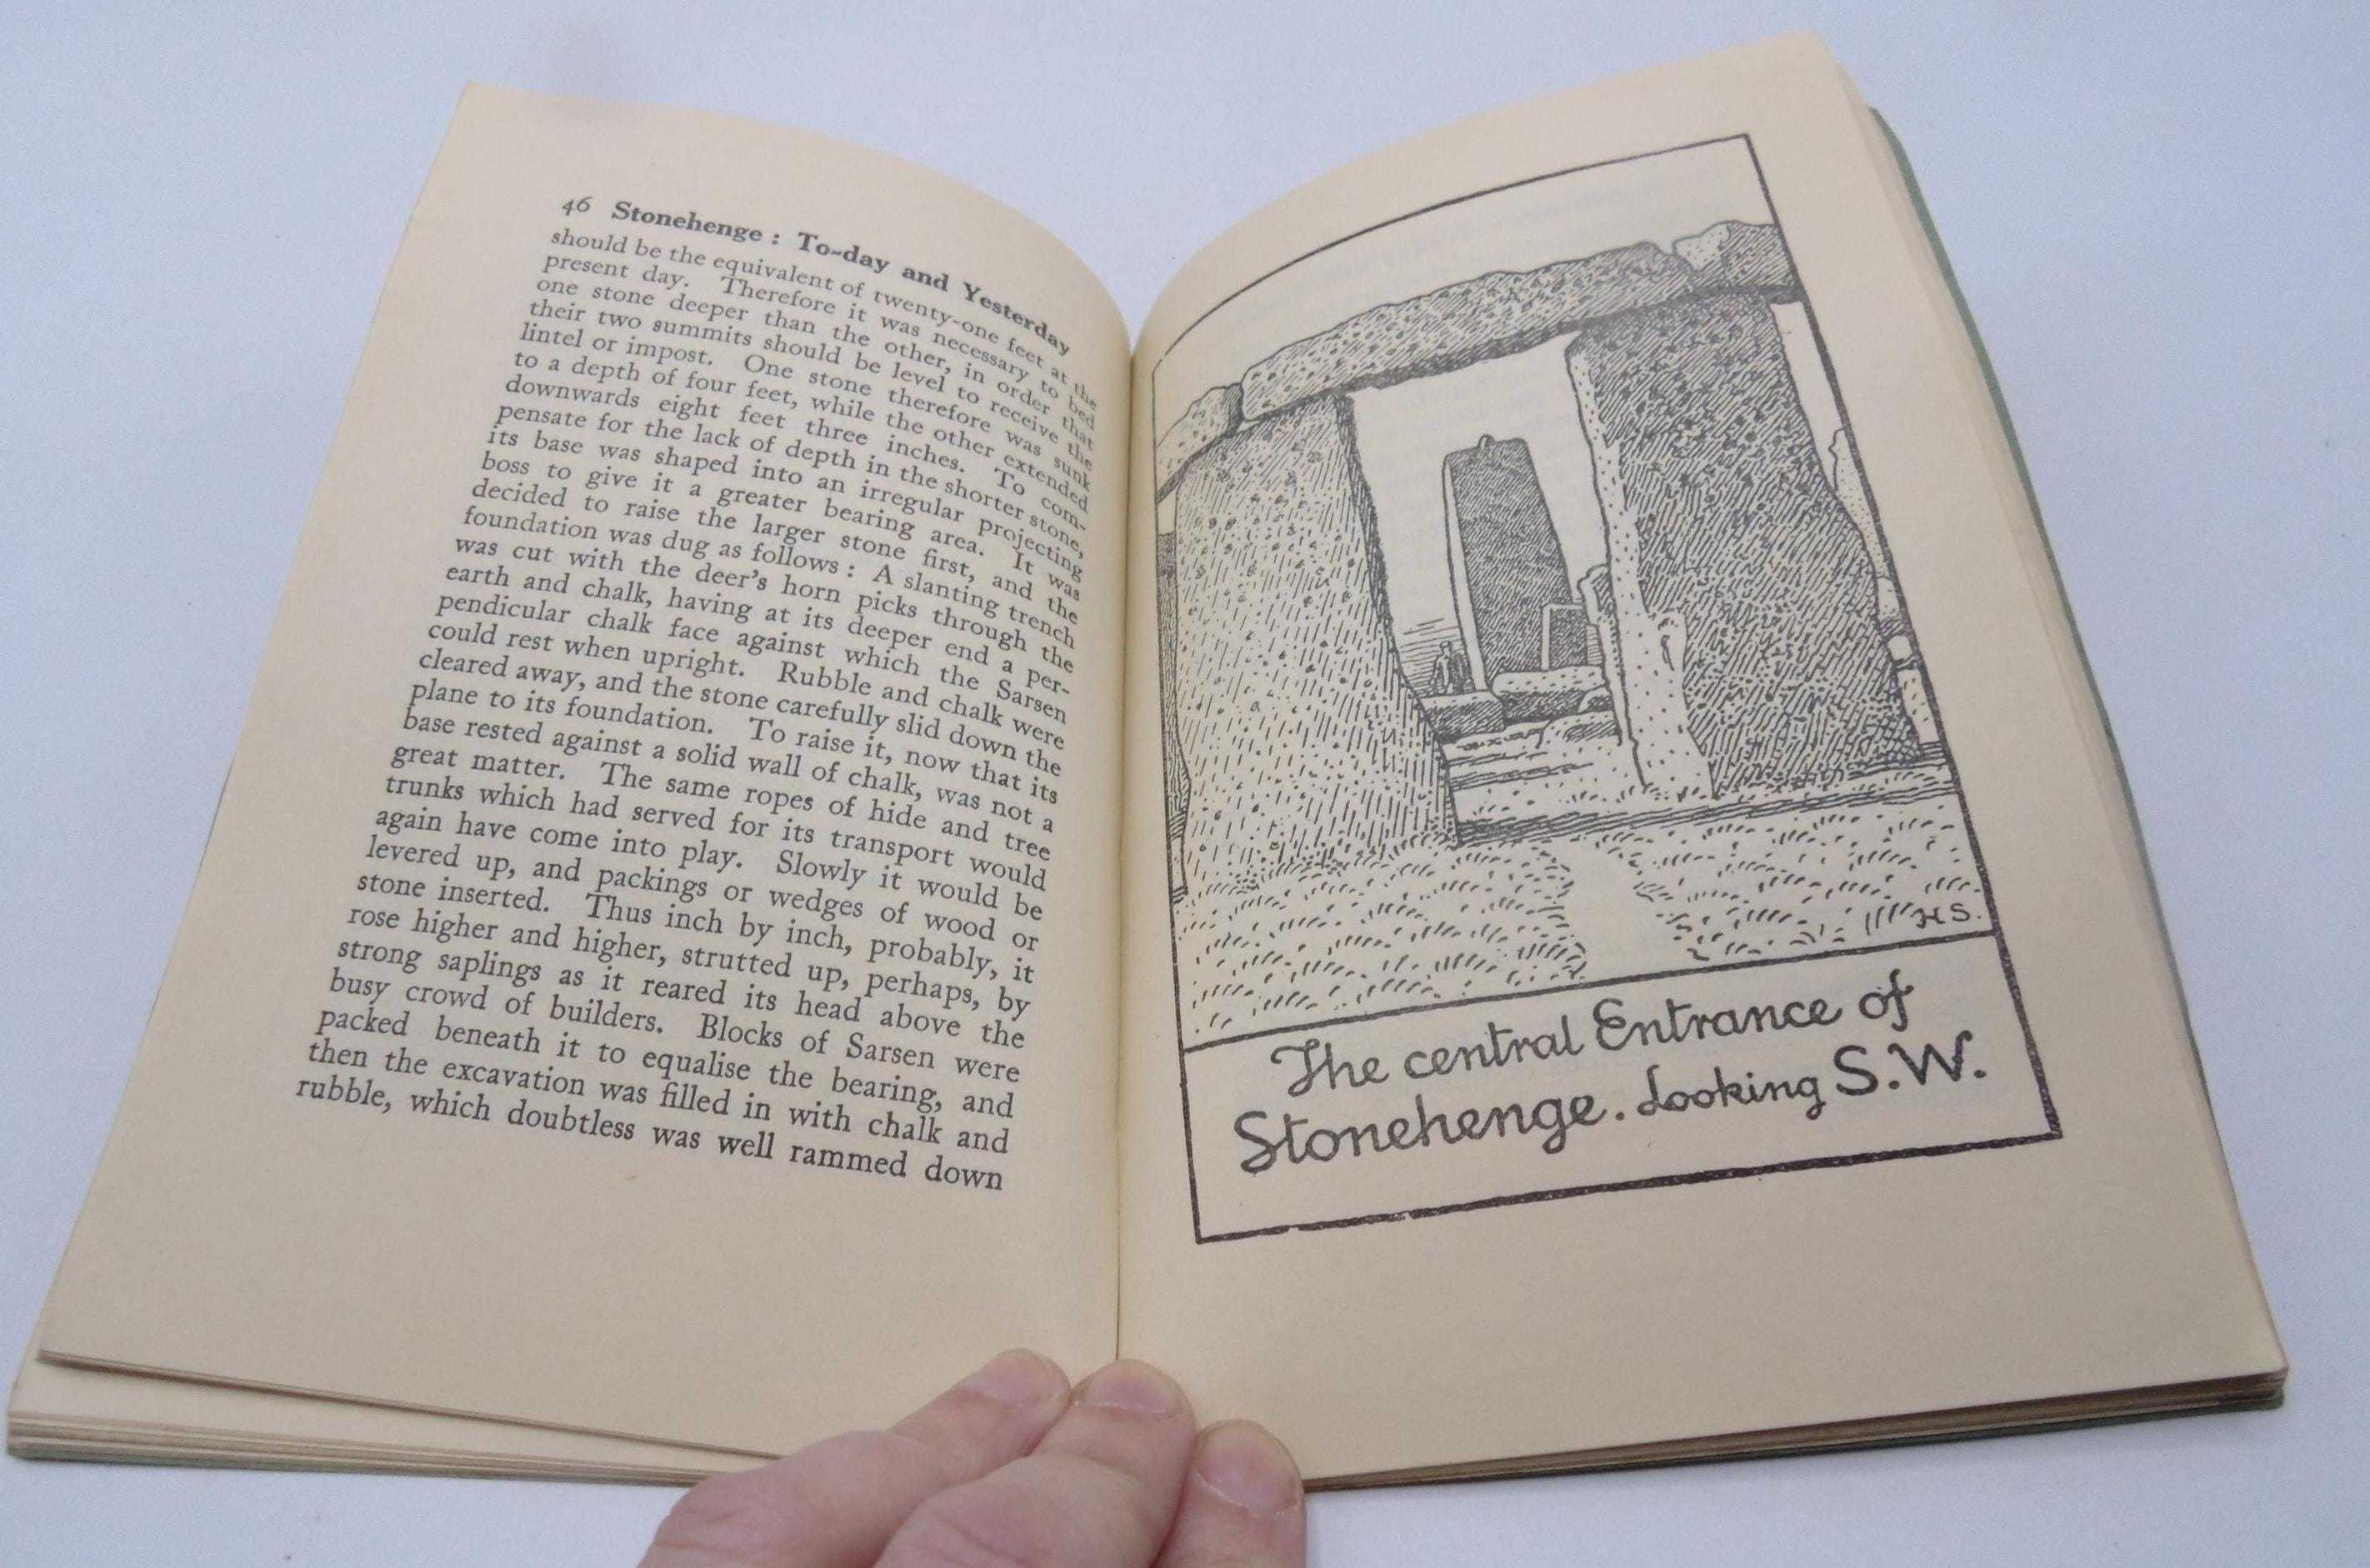 46 Stonehenge : To-day and Yesterday
should be the equivalent of twenty-one feet at the
present day. Therefore it was necessary to bed
one stone deeper than the other, in order that
their two summits should be level to receive the
lintel or impost. One stone therefore was sunk
to a depth of four feet, while the other extended
downwards eight feet three inches. To com-
pensate for the lack of depth in the shorter stone,
its base was shaped into an irregular projecting
boss to give it a greater bearing area. It was
decided to raise the larger stone first, and the
foundation was dug as follows : A slanting trench
was cut with the deer's horn picks through the
earth and chalk, having at its deeper end a per-
pendicular chalk face against which the Sarsen
could rest when upright. Rubble and chalk were
cleared away, and the stone carefully slid down the
plane to its foundation. To raise it, now that its
base rested against a solid wall of chalk, was not a
great matter. The same ropes of hide and tree
trunks which had served for its transport would
again have come into play. Slowly it would be
levered up, and packings or wedges of wood or
stone inserted. Thus inch by inch, probably, it
rose higher and higher, strutted up, perhaps, by
strong saplings as it reared its head above the
busy crowd of builders. Blocks of Sarsen were
packed beneath it to equalise the bearing, and
then the excavation was filled in with chalk and
rubble, which doubtless was well rammed down
HS.
The central Entrance of
Stonehenge. Looking S.W.